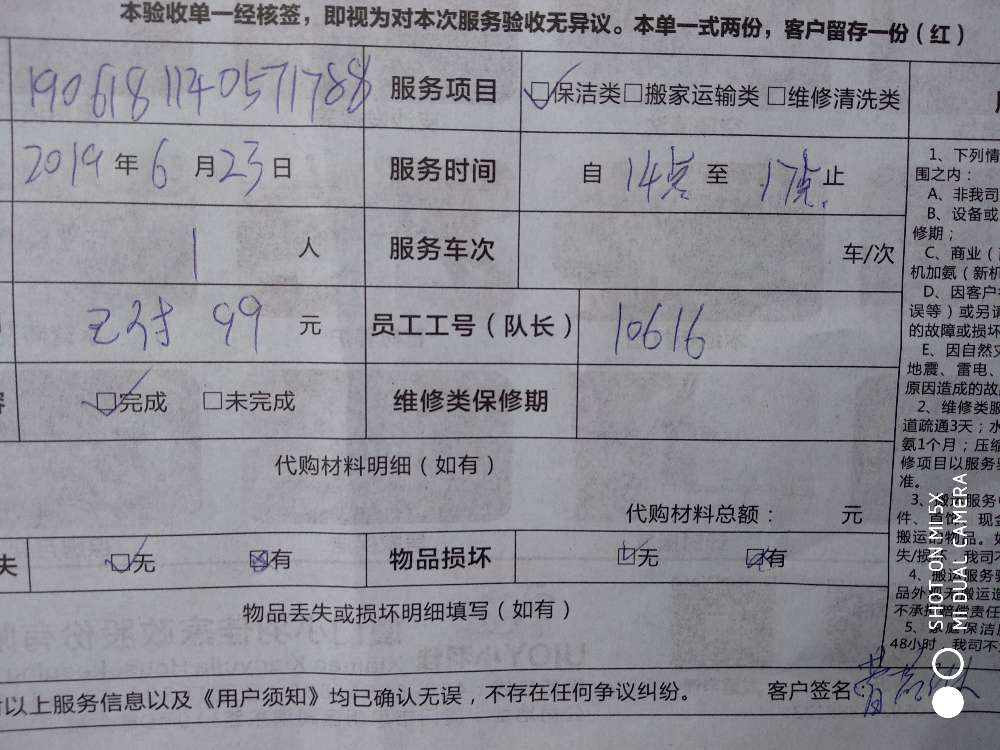 本验收单一经核签，即视为对本次服务验收无异议。本单一式两份，客户留存一份（红）
1906181140571788 服务项目 保洁类 搬家运输类 维修清洗类
2019年6月23日 服务时间 自 14点 至 17点 止
1 人 服务车次 车/次
已付 99 元 员工工号（队长） 10616
完成 未完成 维修类保修期
代购材料明细（如有）
代购材料总额： 元
失 无 有 物品损坏 无 有
物品丢失或损坏明细填写（如有）
以上服务信息以及《用户须知》均已确认无误，不存在任何争议纠纷。 客户签名
1、下列情
围之内：
A、非我司
B、设备或
修期；
C、商业（
机加氨（新机
D、因客户
误等）或另
的故障或损坏
E、因自然灾
地震、雷电、
原因造成的故
2、维修类服
道疏通3天；水
氨1个月；压缩
修项目以服务
准。
3、搬运服务
件、首饰、现金
搬运的物品。如
失/损坏，我司不
4、搬运服务
品外观无搬运
不承担赔偿责任
5、家庭保洁
48小时，我司不
SHOT ON MI 5X
MI DUAL CAMERA